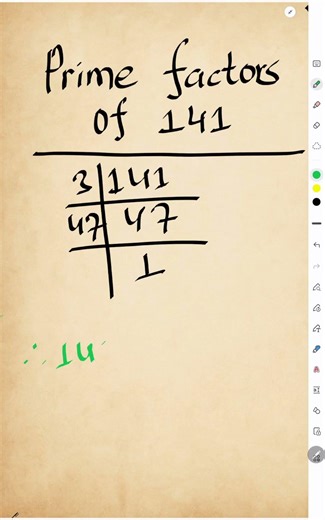 Prime factors
of 141
3 141
47 47
1
∴ 14